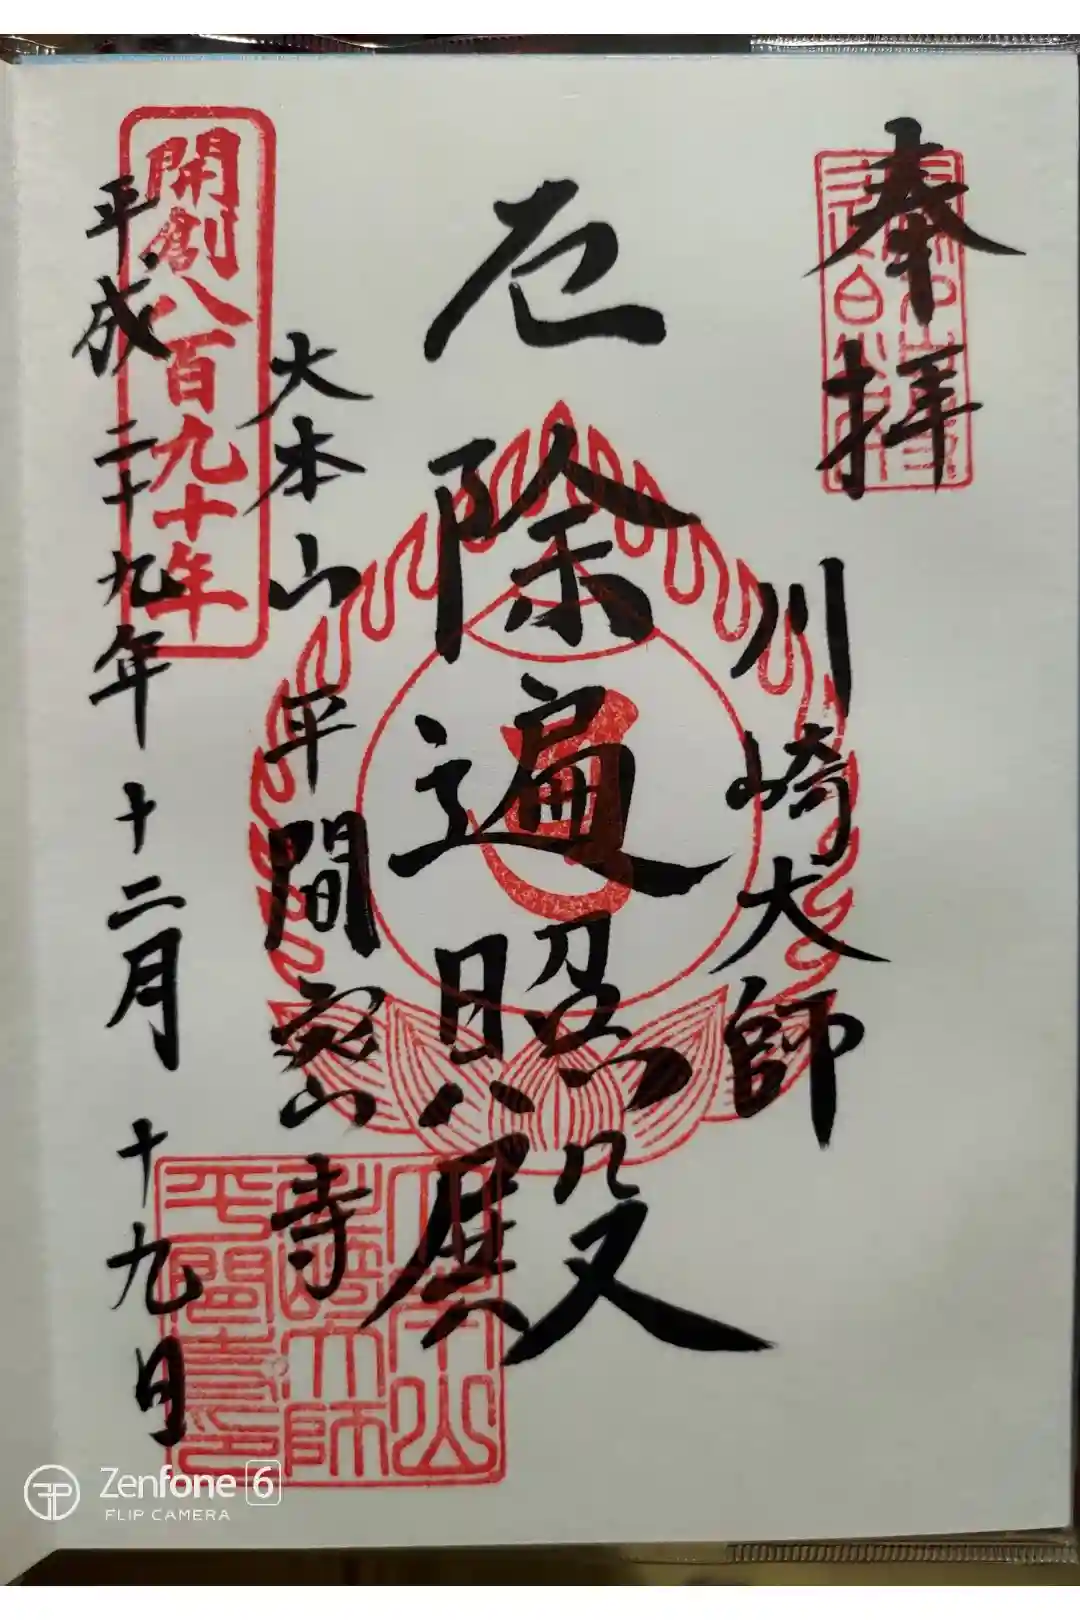 奉拝
川崎大師
厄除遍照殿
大本山 平間寺
平成二十九年十二月十九日
開創八百九十年
大本山
川崎大師
平間寺印
Zenfone 6
FLIP CAMERA